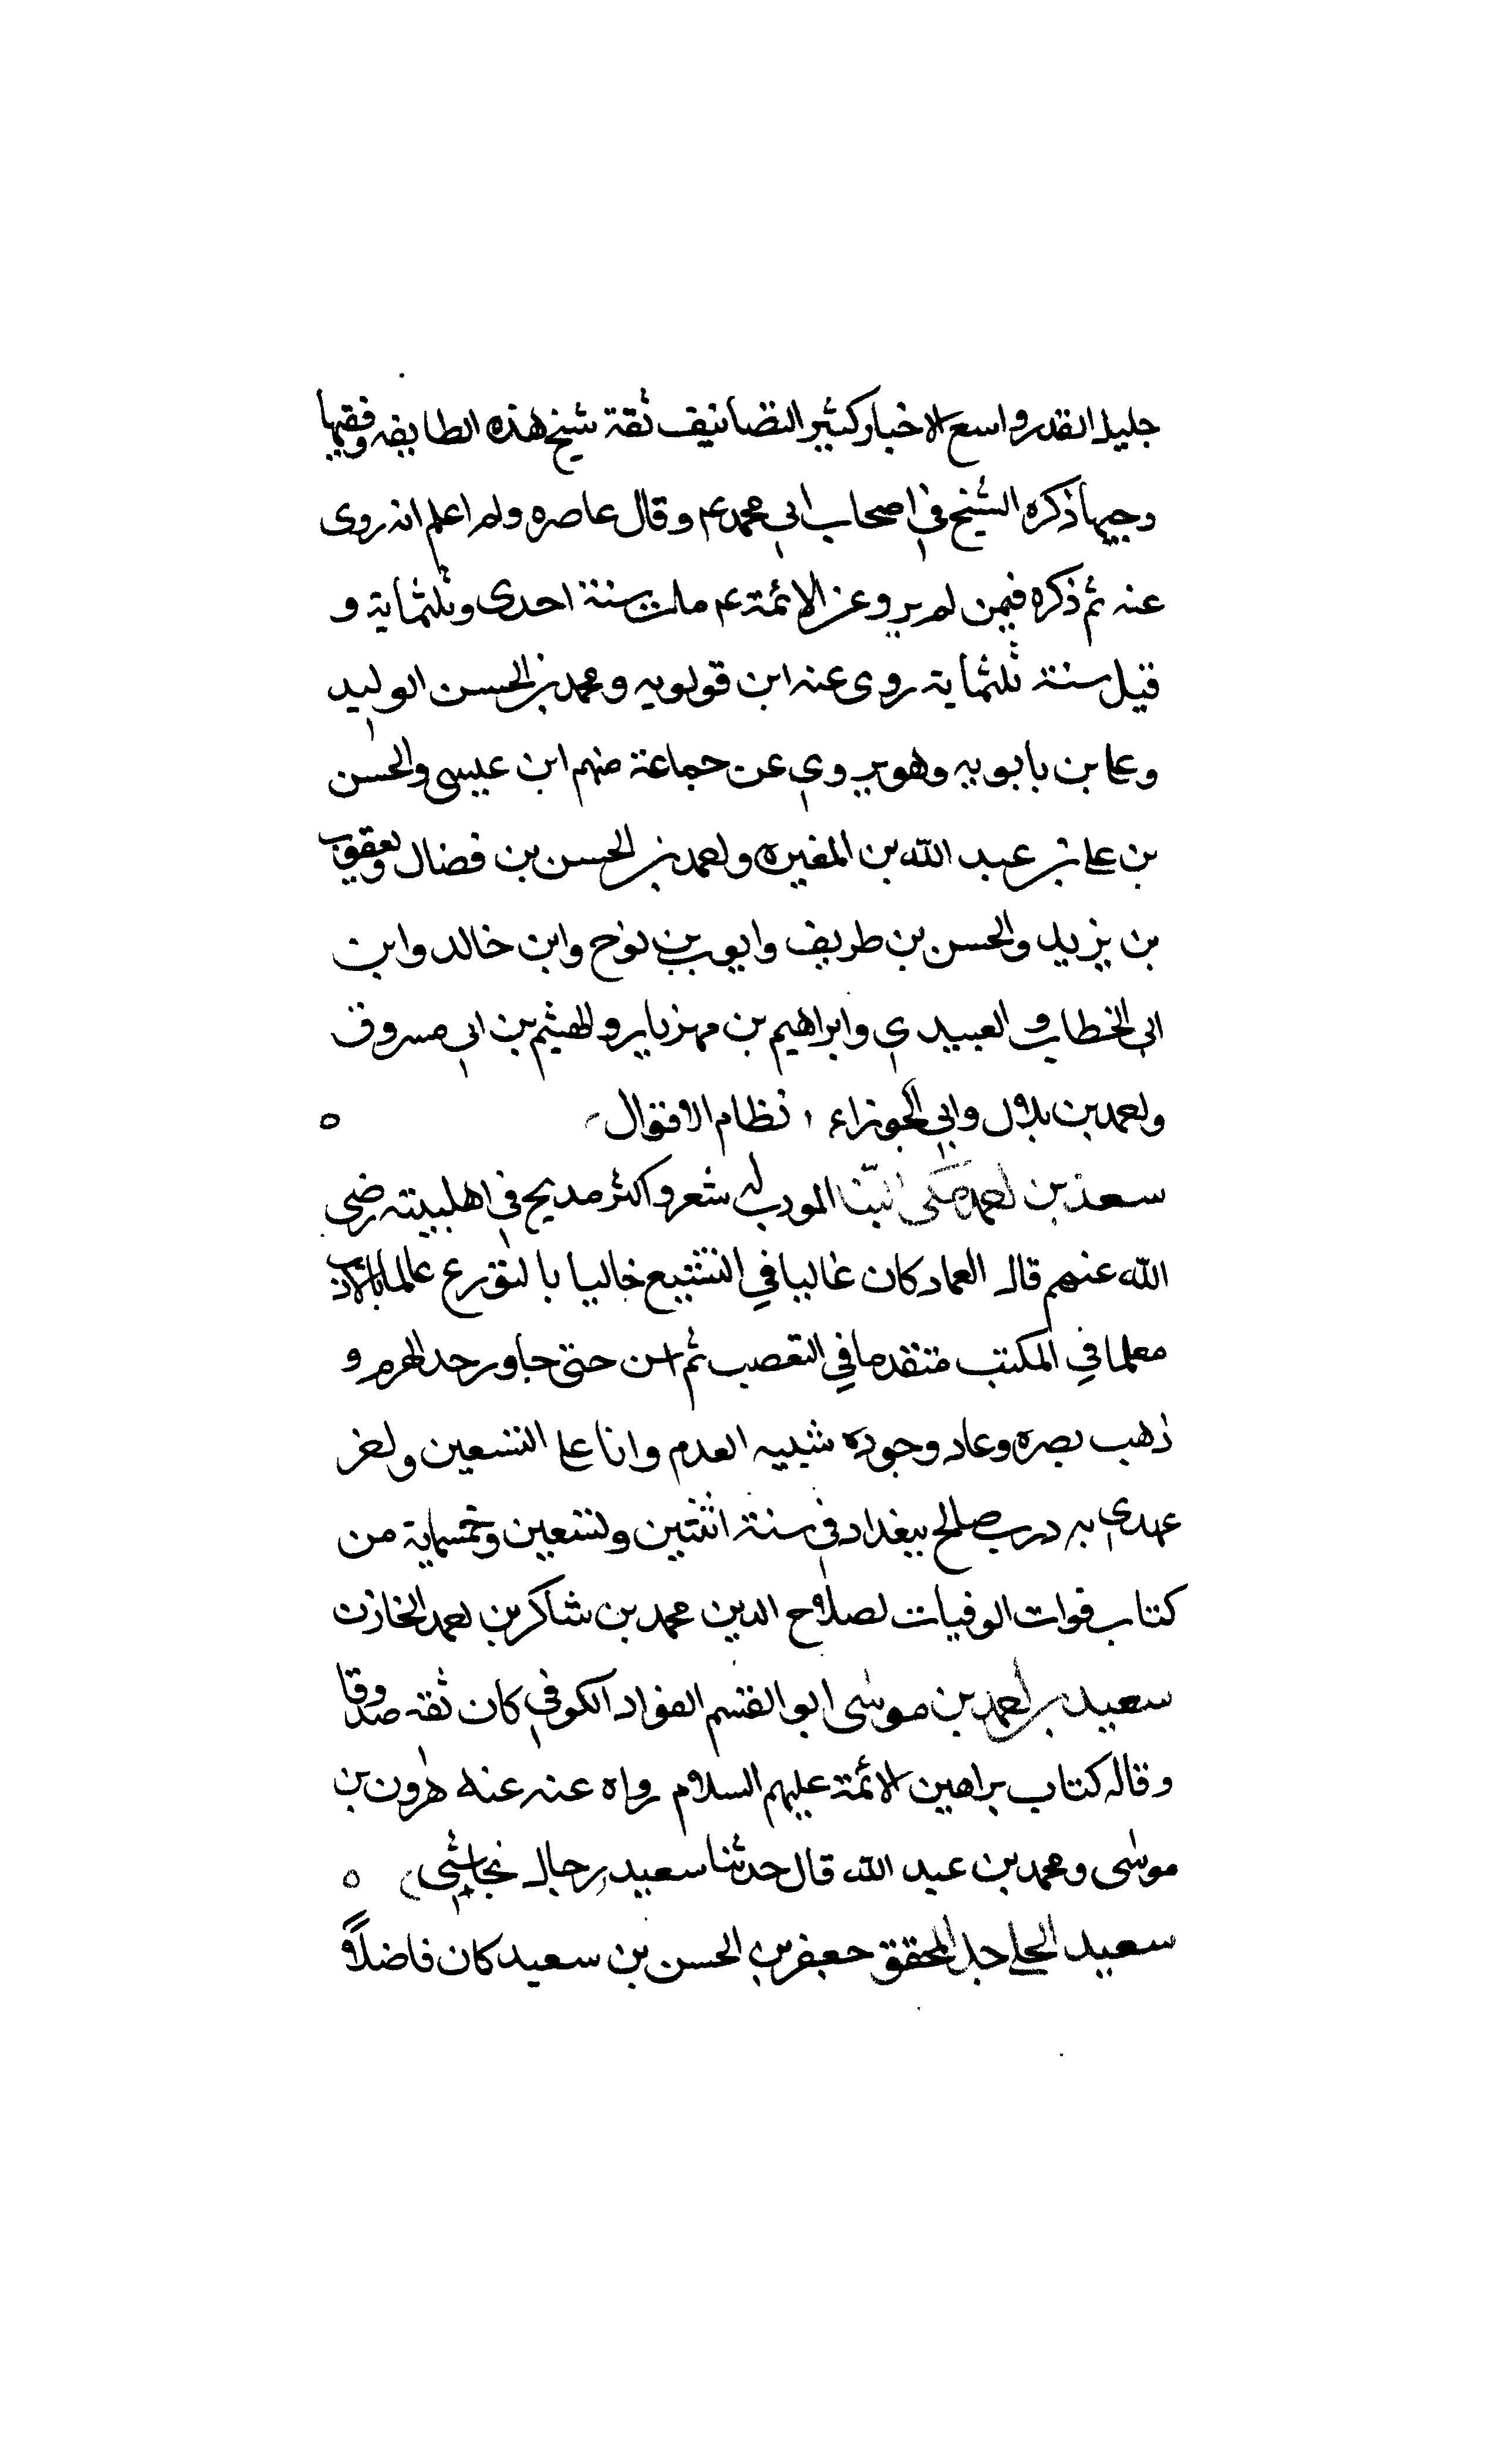 جليل القدر واسع الاخبار كثير التصانيف ثقة شيخ هذه الطايفه وفقيهها
وجيهها ذكره الشيخ في اصحاب ابي محمد ع وقال عاصره ولم اعلم انه روى
عنه ثم ذكره فيمن لم يرو عن الائمة ع مات سنة احدى وثلثماية و
قيل سنة ثلثماية روى عنه ابن قولويه ومحمد بن الحسن الوليد
وعلى بن بابويه وهو يروي عن جماعة منهم ابن عيسى والحسن
بن على بن عبد الله بن المغيره واحمد بن الحسن بن فضال ويعقوب
بن يزيد والحسن بن طريف وايوب بن نوح وابن خالد وابن
ابي الخطاب والعبيدي وابراهيم بن مهزيار والهيثم بن ابي مسروق
واحمد بن بلال وابي الجوزاء نظام الاقوال
سعد بن احمد مكى المودب له شعر واكثر مديح في اهلبيته رضي
الله عنهم قال العماد كان غاليا في التشيع خاليا بالتورع عالما بالادب
معلما في المكتب متقدما في التعصب ثم اسن حتى جاور حد الهرم و
ذهب بصره وعاد وجوده شبيه العدم وانا على التسعين واخر
عهدي به درب صالح ببغداد في سنة اثنتين وتسعين وخمسماية من
كتاب فوات الوفيات لصلاح الدين محمد بن شاكر بن احمد الخازن
سعيد بن احمد بن موسى ابو القسم الفواد الكوفي كان ثقه صدوقا
وقاله كتاب براهين الائمة عليهم السلام رواه عنه عنه هرون بن
موسى ومحمد بن عبد الله قال حدثنا سعيد رجال نجاشي
سعيد الحلي جد المحقق جعفر بن الحسن بن سعيد كان فاضلا